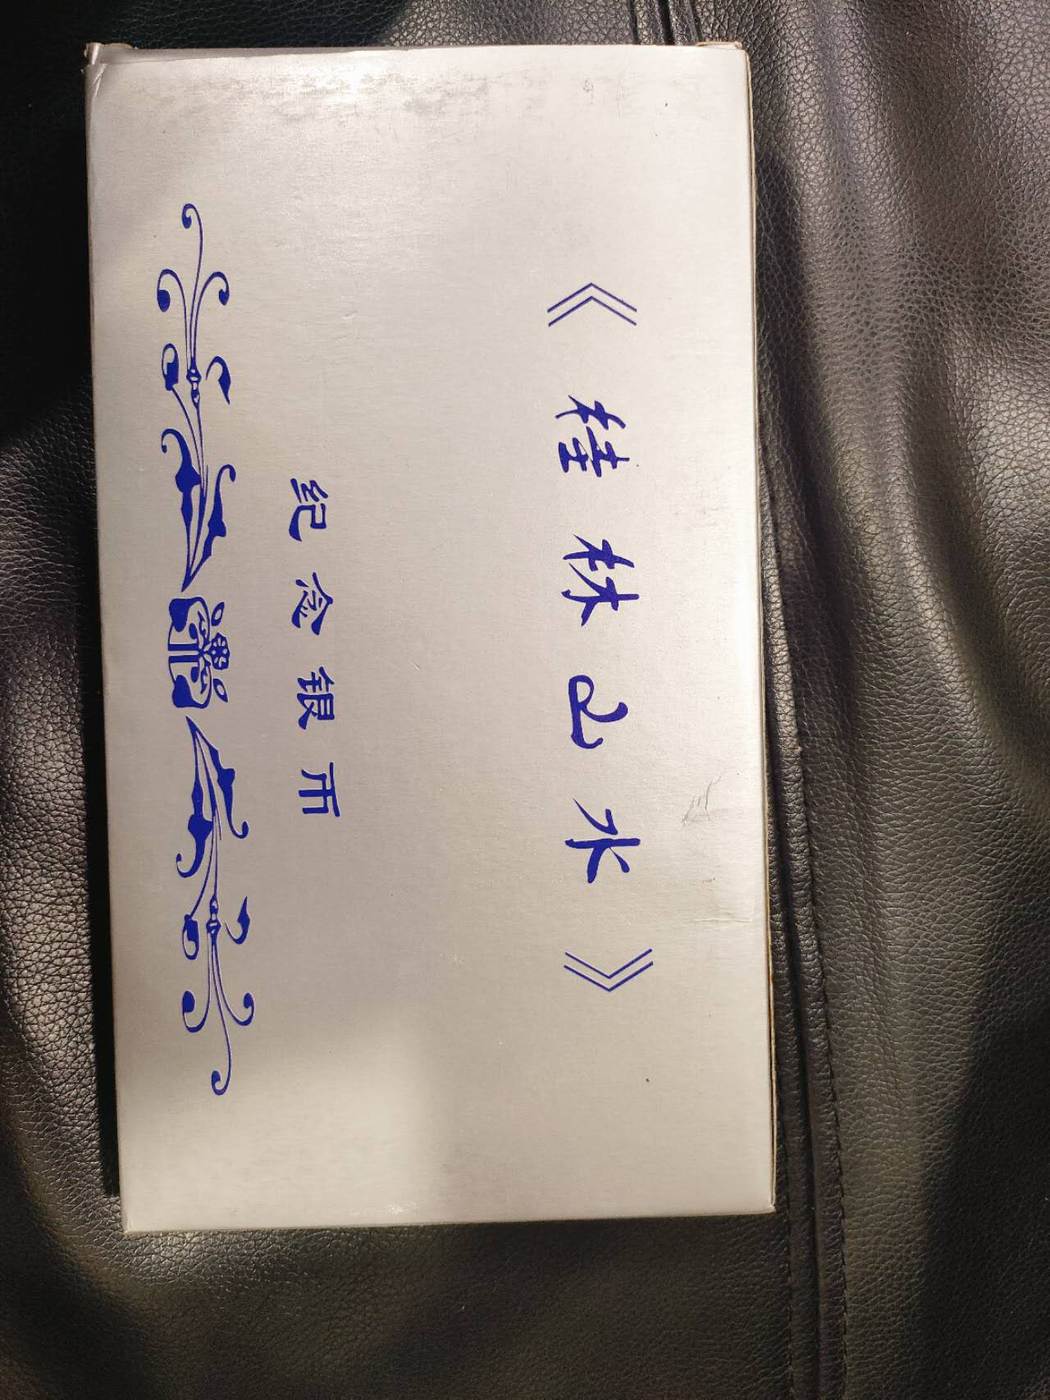 《桂林山水》
纪念银币